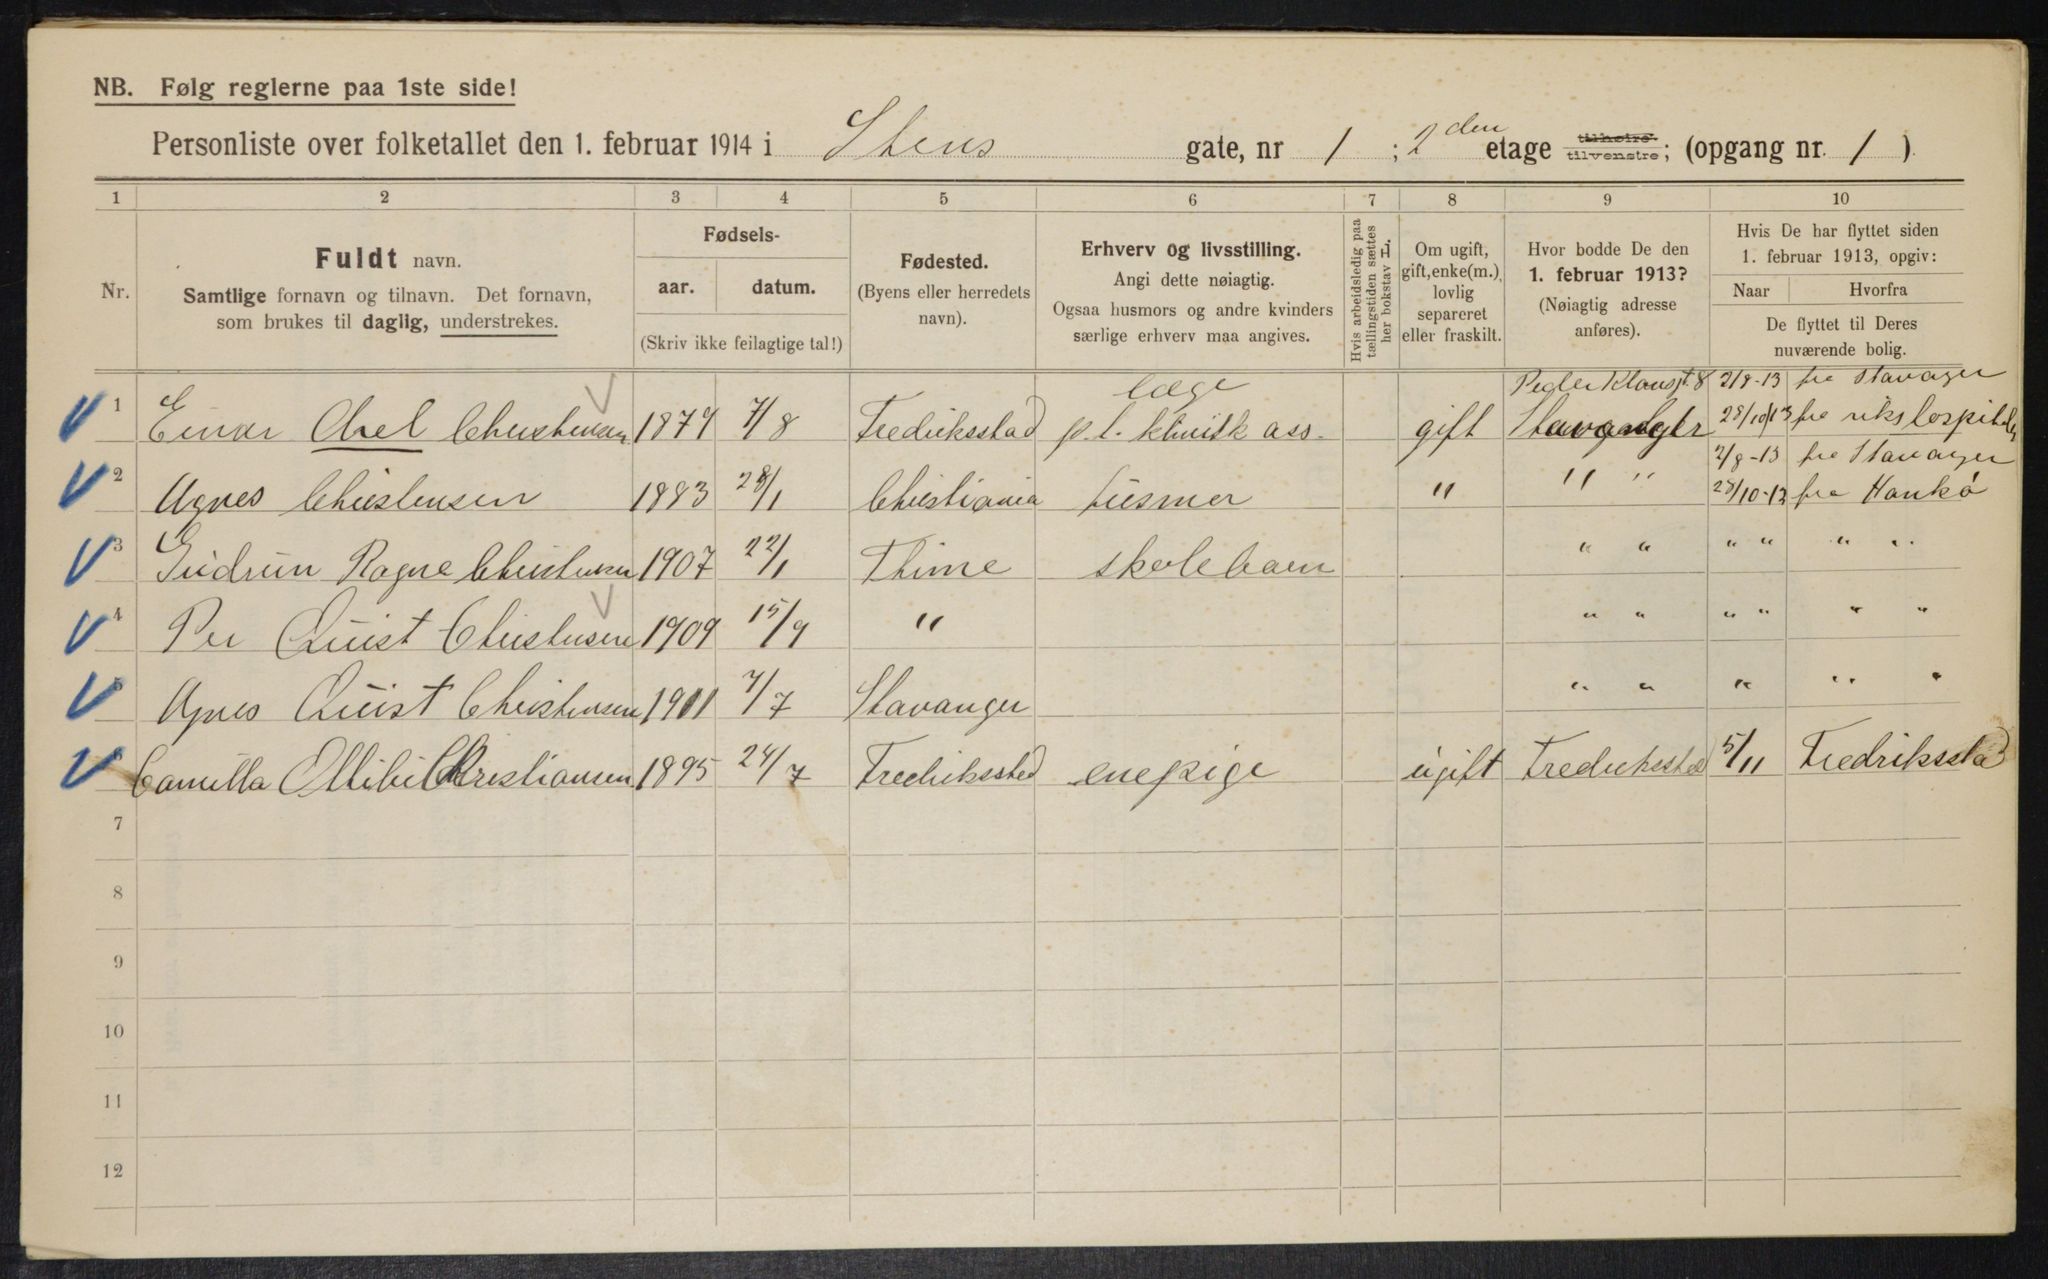 NB. Følg reglerne paa 1ste side!
Personliste over folketallet den 1. februar 1914 i Stens gate, nr 1 ; 2den etage tilhøire tilvenstre; (opgang nr. 1 ).
1 2 3 4 5 6 7 8 9 10
Nr.
Fuldt navn.
Samtlige fornavn og tilnavn. Det fornavn,
som brukes til daglig, understrekes.
Fødsels-
aar. datum.
(Skriv ikke feilagtige tal!)
Fødested.
(Byens eller herredets
navn).
Erhverv og livsstilling.
Angi dette nøiagtig.
Ogsaa husmors og andre kvinders
særlige erhverv maa angives.
Hvis arbeidsledig paa
tællingstiden sættes
her bokstav L.
Om ugift,
gift, enke(m.),
lovlig
separeret
eller fraskilt.
Hvor bodde De den
1. februar 1913?
(Nøiagtig adresse
anføres).
Hvis De har flyttet siden
1. februar 1913, opgiv:
Naar Hvorfra
De flyttet til Deres
nuværende bolig.
læge Peder Klausgt. 8 2/8-13 fra Stavanger
1 Einar Axel Christensen 1879 7/8 Fredriksstad p.t. klinisk ass. gift Stavanger 28/10/13 fra rikshospitalet
2/8-13 fra Stavanger
2 Agnes Christensen 1883 28/1 Christiania husmor " " " 28/10-13 fra Hankø
3 Gudrun Ragne Christensen 1907 22/1 Thime skolebarn " " " " " "
4 Per Quist Christensen 1909 15/9 " " " " " " "
5 Agnes Quist Christensen 1911 7/7 Stavanger " " " " "
6 Camilla Christiansen 1895 24/7 Fredriksstad enepige ugift Fredriksstad 5/11 Fredriksstad
7
8
9
10
11
12